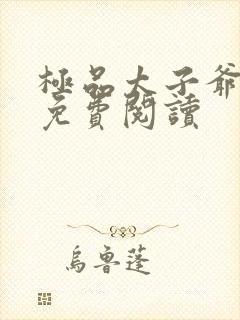 極品太子爺
免費閱讀
烏魯蓬